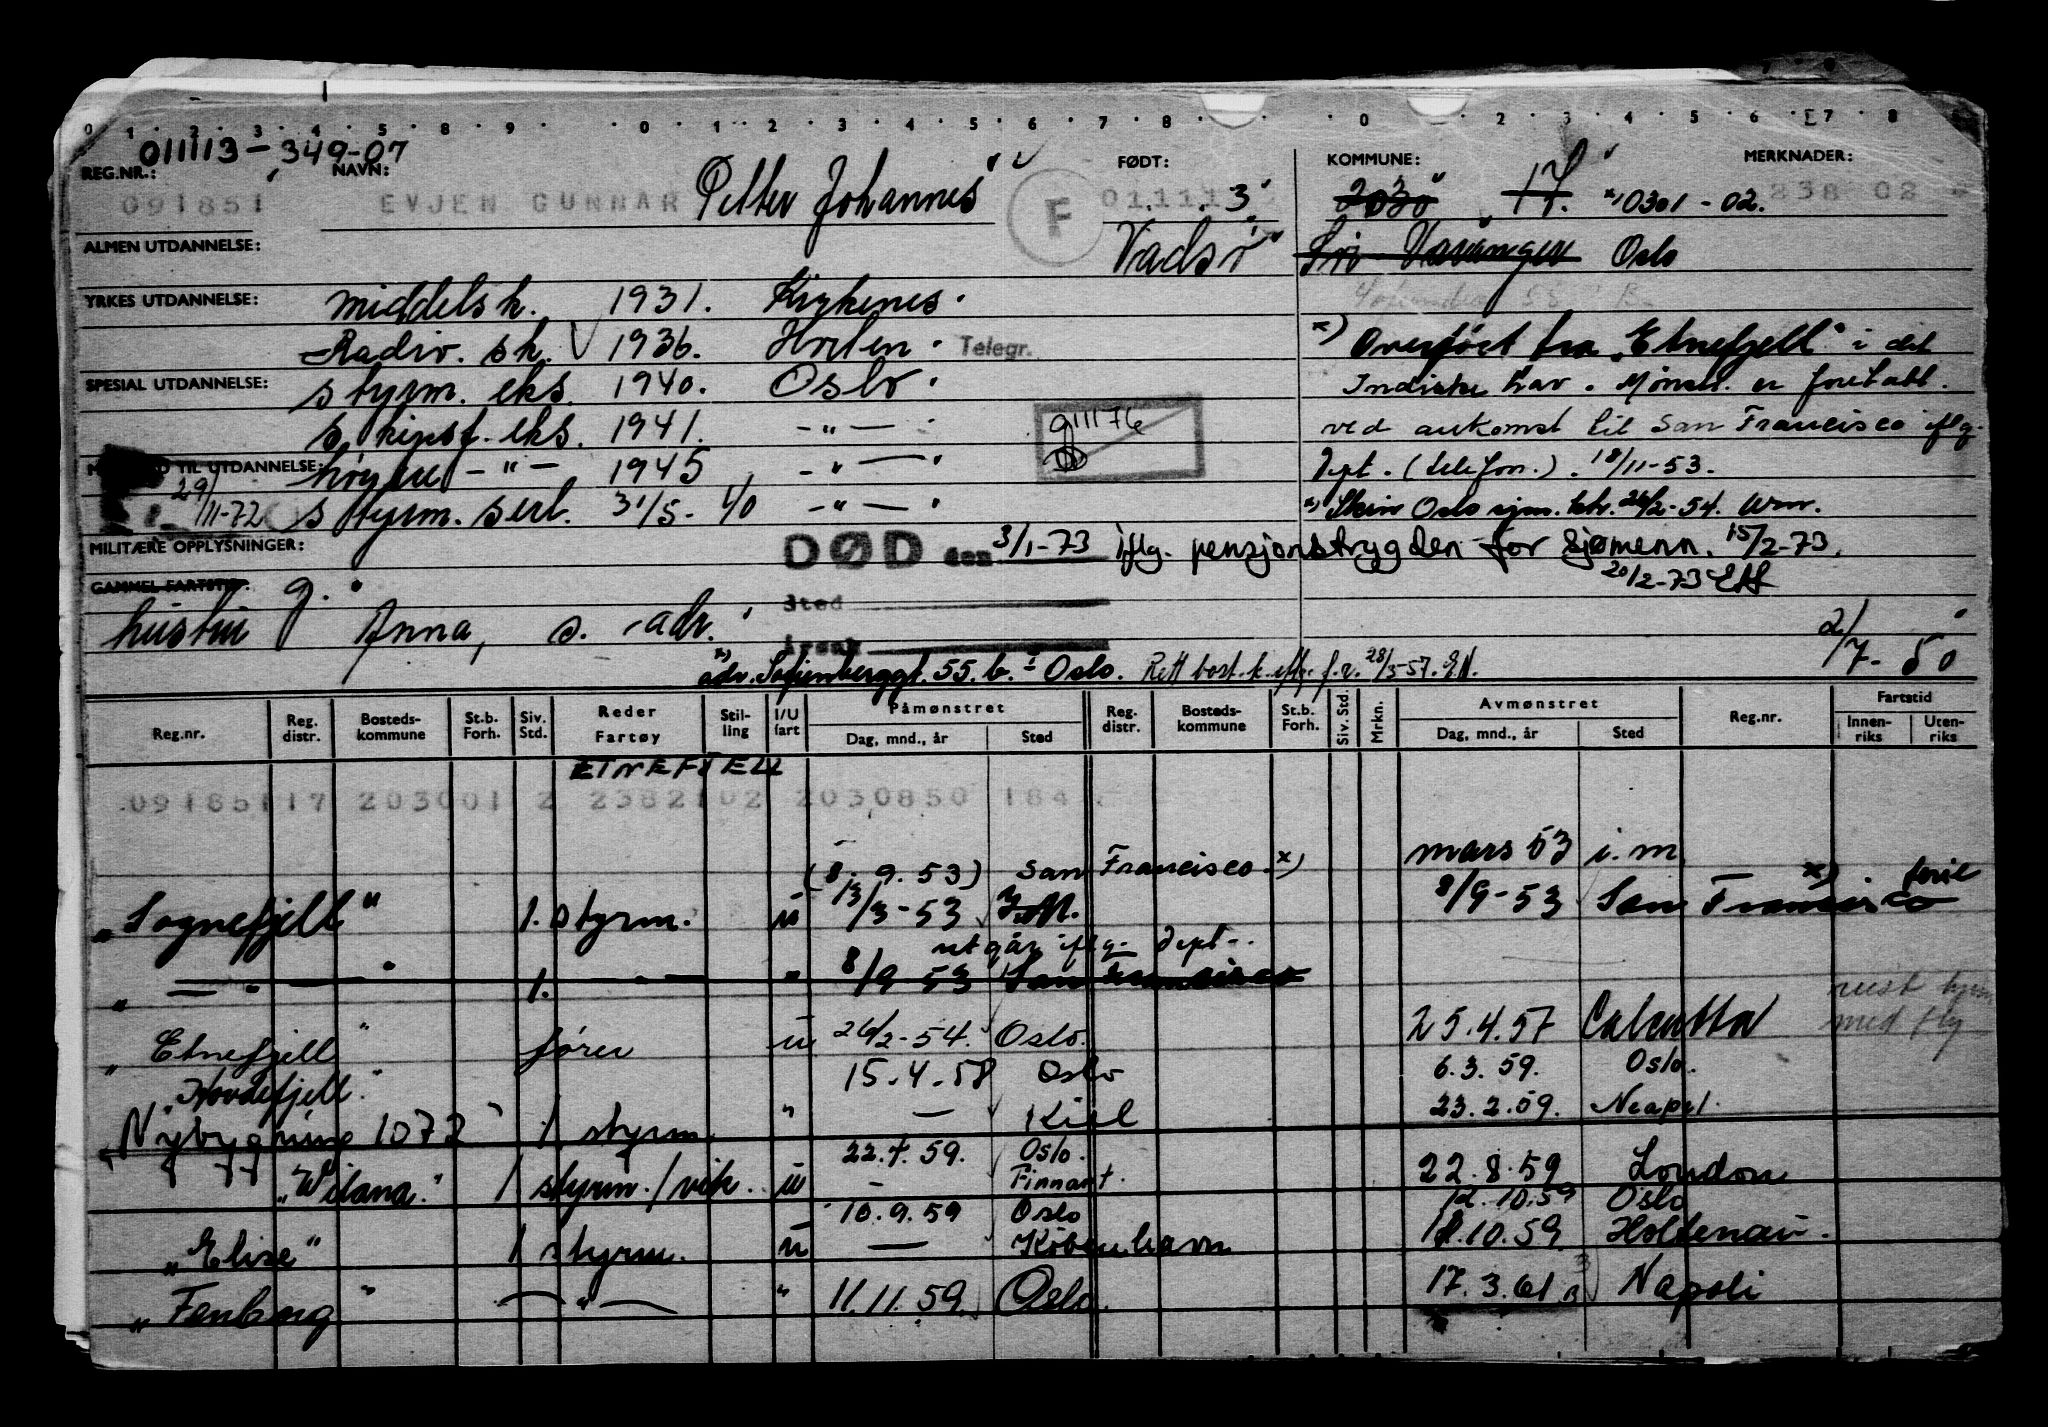 011113-349-07
REG.NR.: NAVN: FØDT: KOMMUNE: MERKNADER:
091851 EVJEN GUNNAR Petter Johannes F 011113 2030 17. x) 0301-02. 238 02
ALMEN UTDANNELSE: Vadsø Sør-Varanger Oslo
YRKES UTDANNELSE: middelsk. 1931. Kirkenes.
Radio. sk. 1936. Horten. Telegr. x) Overført fra "Etnefjell" i det
SPESIAL UTDANNELSE: styrm. eks. 1940. Oslo. Indiske hav. Mønstr. er foretatt
skipsf. eks. 1941. -"- 91176 ved ankomst til San Francisco iflg.
TIL UTDANNELSE: høyere -"- 1945 -"- Dept. (telefon.). 18/11-53.
29/III-72 styrm. sert. 31/5-40 -"- x) Skin Oslo sjm. ktr. 26/2-54.
MILITÆRE OPPLYSNINGER: DØD den 3/1-73 iflg. pensjonstrygden for sjømenn. 15/2-73.
GAMMEL FARTSTID. g. 20/2-73
Sted
hustru Anna, s. adr. 2/7-50
Årsak
x) adr. Sofienberggt. 55. b. Oslo. Rett bost.k. iflg. f.r. 28/3-57.
Reg.nr. Reg. distr. Bosteds-kommune St.b. Forh. Siv. Std. Reder Fartøy Stil-ling I/U fart Påmønstret Dag, mnd., år Sted Reg. distr. Bosteds-kommune St.b. Forh. Siv. Std. Mrkn. Avmønstret Dag, mnd., år Sted Reg.nr. Fartstid Innen-riks Uten-riks
ETNEFJELL
09185117 203001 2 2382102 2030850 184
mars 53 i.m
(8.9.53) San Francisco x)
"Sognefjell" 1. styrm. u 13/3-53 I.M. 8/9-53 San Francisco x) ferie
utgår iflg. Dept.
" - " - " 1. - " - " 8/9-53 San Francisco
"Etnefjell" fører u 26/2-54. Oslo. 25.4.57 Calcutta reist hjem med fly
"Hovdefjell". 15.4.58 Oslo 6.3.59. Oslo.
Nybygning 1072 1 styrm. " — Kiel 23.2.59. Neapel.
22.7.59. Oslo.
"Wilana." 1 styrm./vik. u - Finnart. 22.8.59 London
10.9.59 Oslo 12.10.59 Oslo
"Elise" 1 styrm. u — København 12.10.59 Holtenau.
"Fenberg" -"- " 11.11.59. Oslo. 17.3.61. Napoli